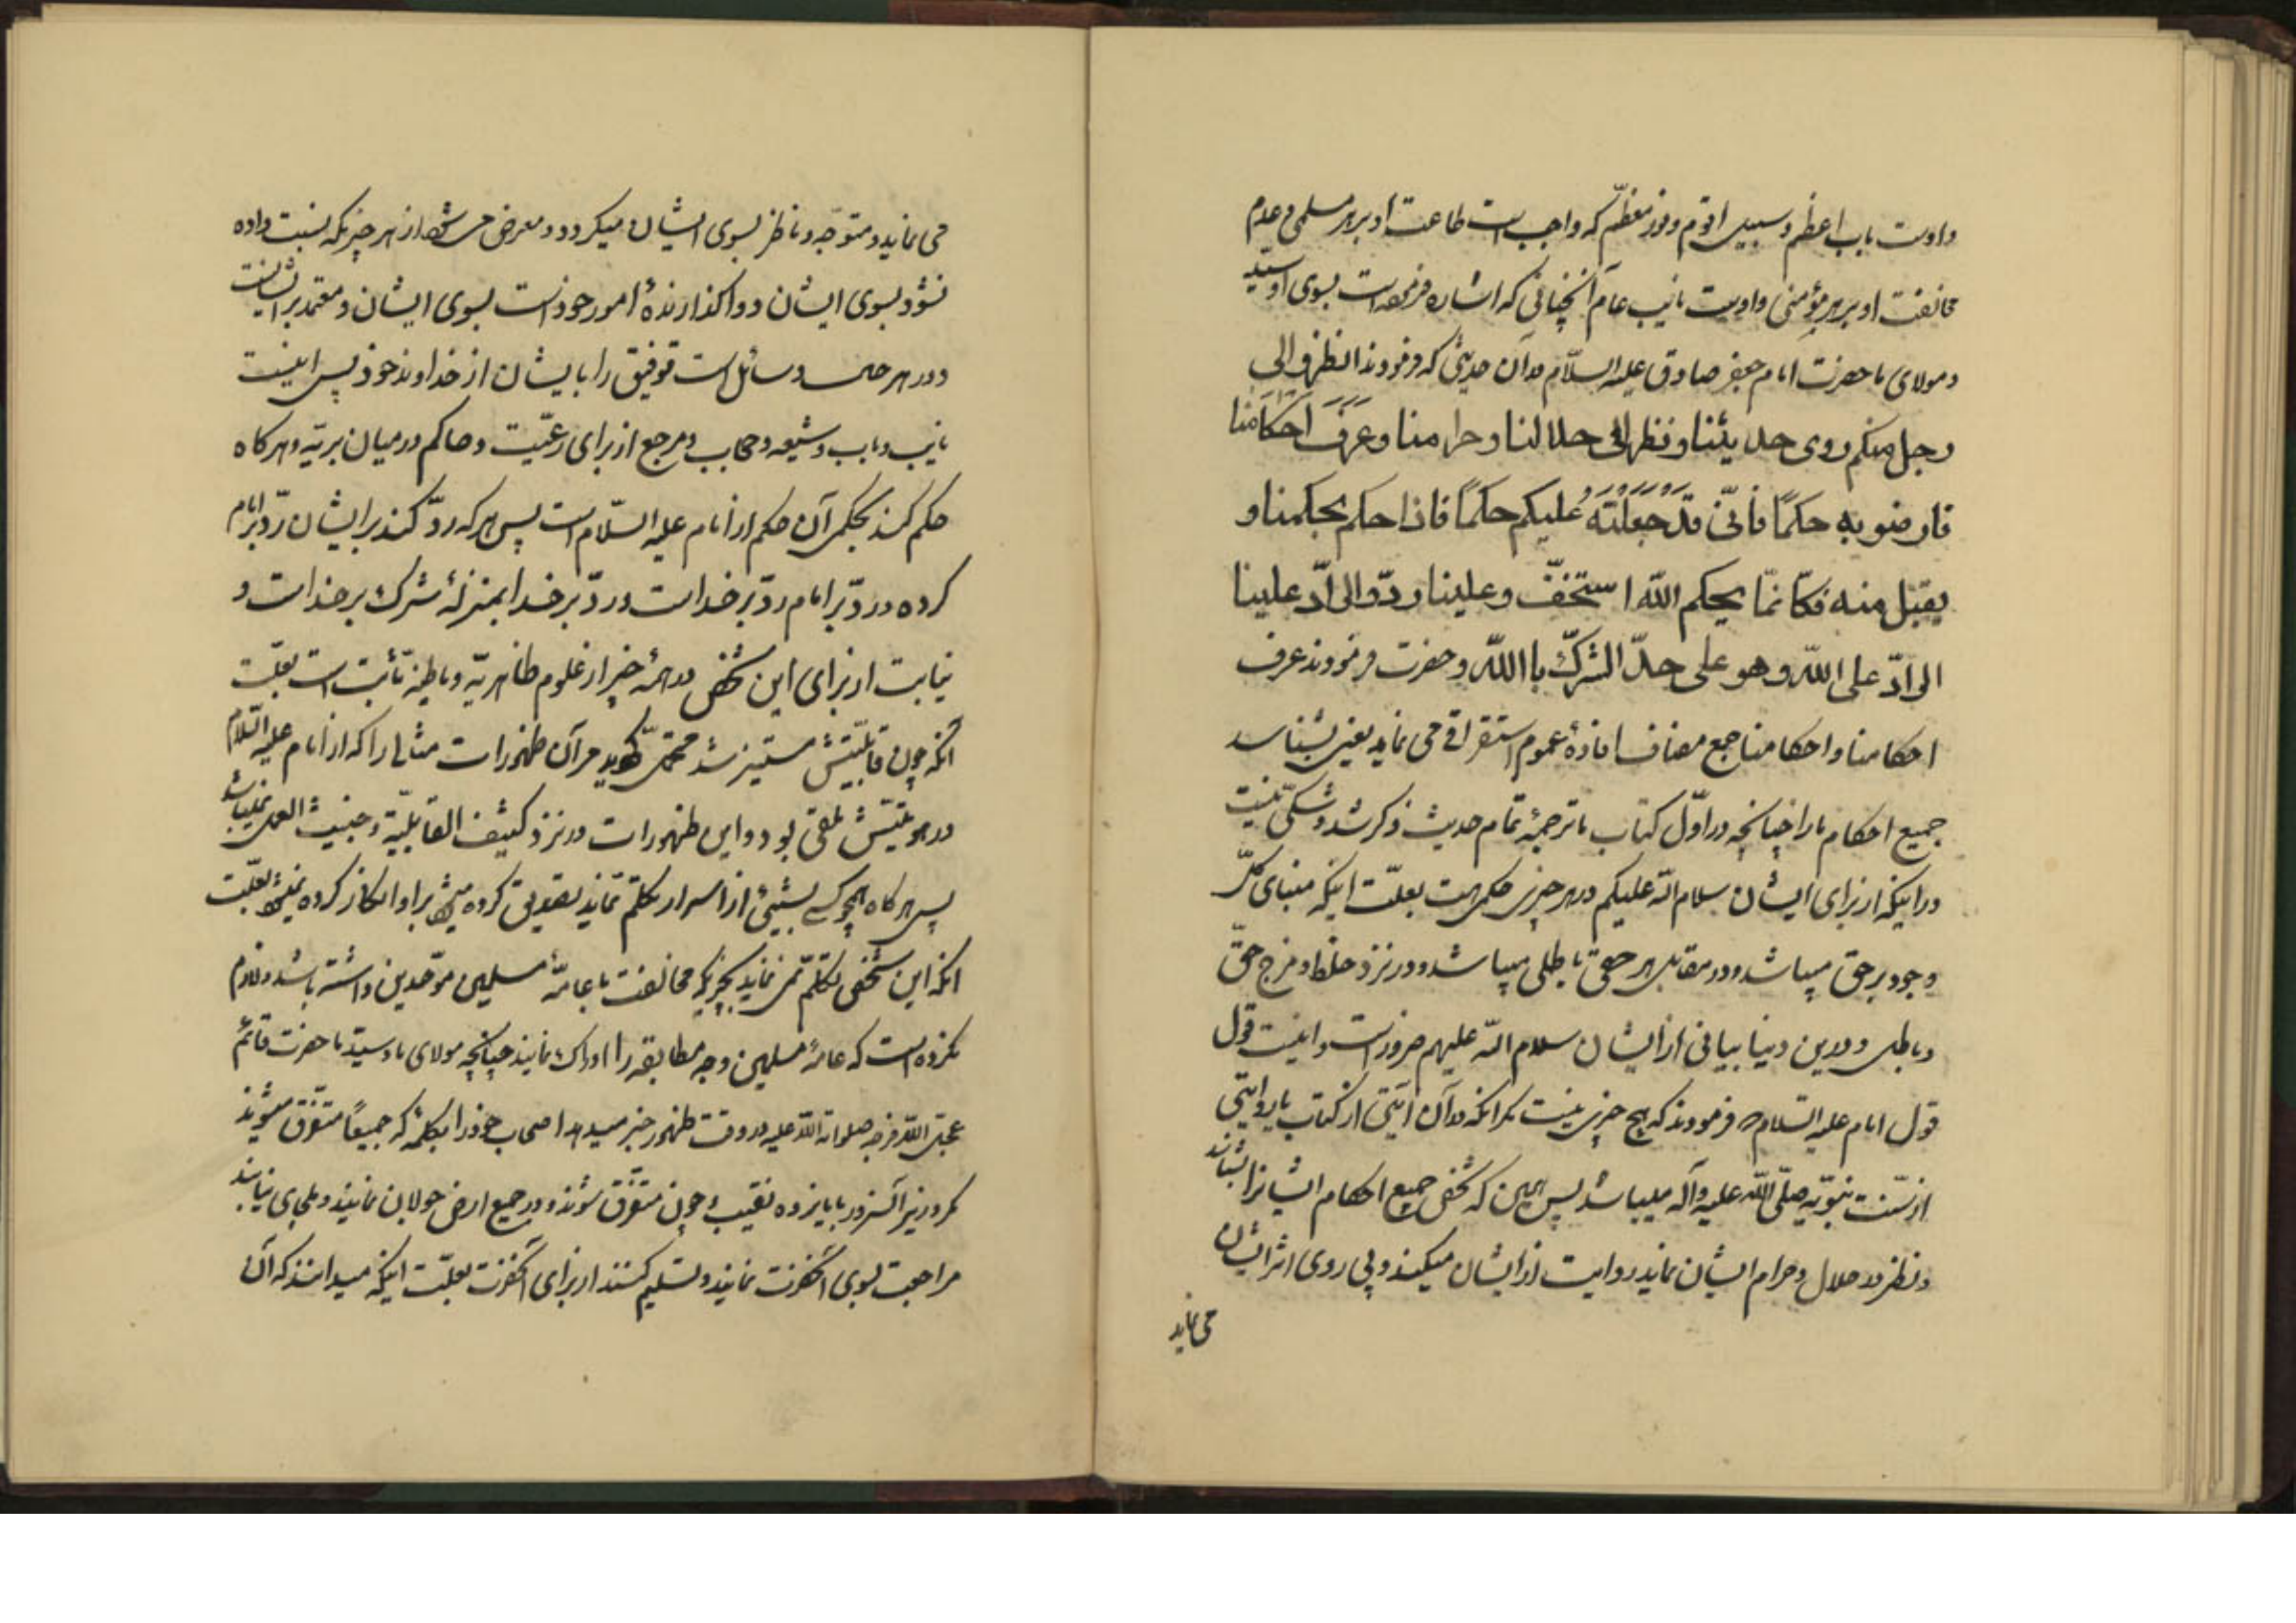 و اوست باب اعظم و سبیل اقوم و نور معظم که واجب است طاعت او بر هر مسلمی و عدم
مخالفت او بر هر مؤمنی و اوست نایب عام آنچنانی که اشاره فرموده است بسوی او سید
و مولای ما حضرت امام جعفر صادق علیه السلام در آن حدیثی که فرمودند انظروا الی
رجل منکم روی حدیثنا و نظر الی حلالنا و حرامنا و عَرَفَ احکامَنا
فارضو به حکمًا فانّی قَدْ جَعَلْتُهُ عَلیکم حکمًا فاذا حکم بحکمنا و
یقبل منه فکانّما بحکم اللّه استخفّ و علینا ردّ و الرادّ علینا
الرادّ علی اللّه و هو علی حدّ الشرک باللّه و حضرت فرمودند عرف
احکامنا و احکامنا جمع مضاف افادهٔ عموم استغراقی می نماید یعنی بشناسد
جمیع احکام ما را چنانچه در اوّل کتاب با ترجمهٔ تمام حدیث ذکر شد و شکّی نیست
در اینکه از برای ایشان سلام اللّه علیکم در هر چیزی حکمی هست بعلّت اینکه مبنای کلّ
وجود بر حق میباشد و در مقابل هر حقی باطلی میباشد و در نزد خلط و مزج حقّ
و باطل در دین و دنیا بیانی از ایشان سلام اللّه علیهم ضرور است و اینست قول
قول امام علیه السلام که فرمودند که هیچ چیزی نیست مگر آنکه در آن آیتی از کتاب یا روایتی
از سنّت نبویه صلّی اللّه علیه و آله میباشد پس همین که شخص جمیع احکام ایشانرا بشناسد
و نظر در حلال و حرام ایشان نماید روایت از ایشان میکند و پی روی اثر ایشان
می نماید
می نماید و متوجّه و ناظر بسوی ایشان میگردد و معرض میشود از هر چیزیکه نسبت داده
نشود بسوی ایشان و واگذارندهٔ امور خود است بسوی ایشان و معتمد بر ایشانست
و در هر حال و سائل است توفیق را بایشان از خداوند خود پس اینست
نایب و باب و شیعه و حجاب و مرجع از برای رعیّت و حاکم در میان بریّه و هر کاه
حکم کند بحکمی آن حکم از امام علیه السّلام است پس هر که ردّ کند بر ایشان ردّ بر امام
کرده و ردّ بر امام ردّ بر خداست و ردّ بر خدا بمنزلهٔ شرک بر خداست و
نیابت از برای این شخص در همهٔ چیز از علوم ظاهریّه و باطنیّه ثابت است بعلّت
آنکه چون قابلیّتش مستنیر شد متحمّل گردید مر آن ظهورات مثالی را که از امام علیه السّلام
در هویّتش ملقی بود و این ظهورات در نزد کثیف القابلیّة و خبیث العمل نمیباشد
پس هر کاه همچو کسی بشیئی از اسرار تکلّم نماید تصویق کرده میشود بر او انکار کرده نمیشود بعلّت
آنکه این شخص تکلّم نمی نماید بچیزیکه مخالفت با عامّهٔ مسلمین موحّدین داشته باشد و لازم
نکرده است که عامهٔ مسلمین وجه مطابقه را ادراک نمایند چنانچه مولای ما و سید ما حضرت قائم
عجّل اللّه فرجه صلوات اللّه علیه در وقت ظهور خبر میدهد اصحاب خود را بکلمهٔ که جمیعًا متفرّق میشوند
مکر وزیر آنسرور با یازده نقیب و چون متفرّق شوند و در جمیع ارض جولان نمایند و ملجای نیابند
مراجعت بسوی آنحضرت نمایند و تسلیم کنند از برای آنحضرت بعلّت اینکه میدانند که آن